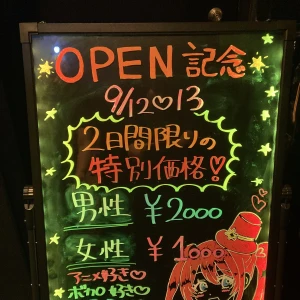 OPEN 記念
9/12♡13
2日間限りの
特別価格♡
男性 ￥2000
女性 ￥1000
アニメ好き♡
ボカロ好き♡